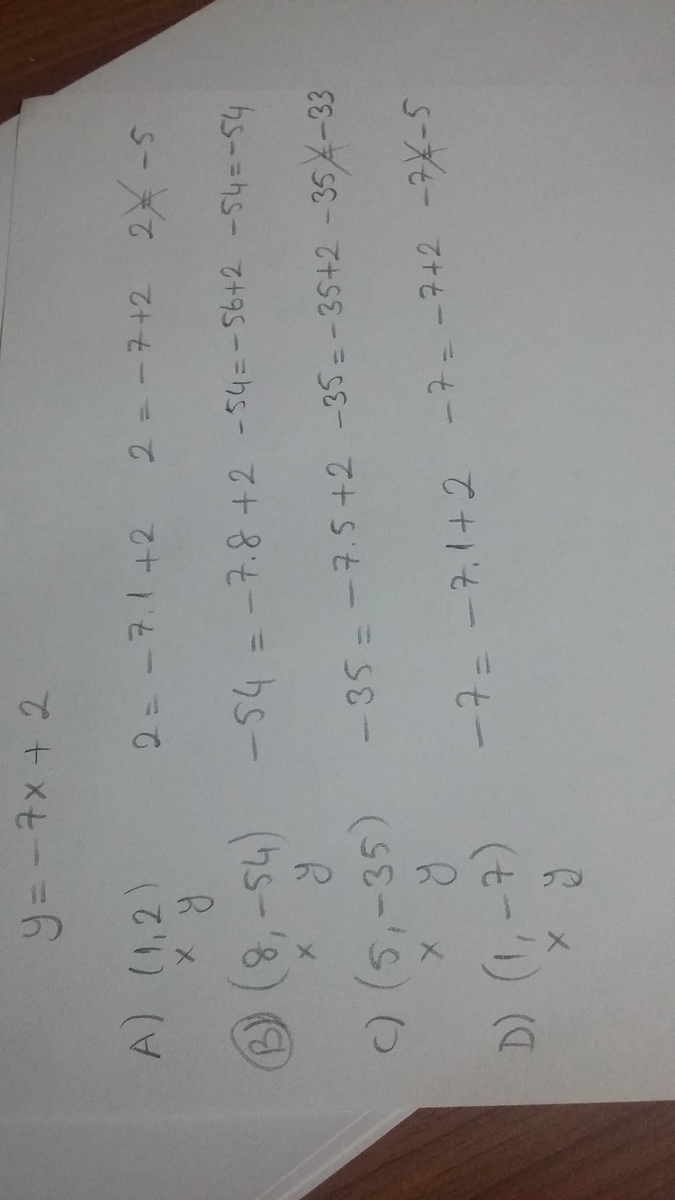 y = -7x + 2
A) (1,2) 2 = -7.1+2 2 = -7+2 2 ≠ -5
x y
B) (8,-54) -54 = -7.8+2 -54=-56+2 -54=-54
x y
C) (5,-35) -35 = -7.5+2 -35=-35+2 -35≠-33
x y
D) (1,-7) -7 = -7.1+2 -7 = -7+2 -7≠-5
x y